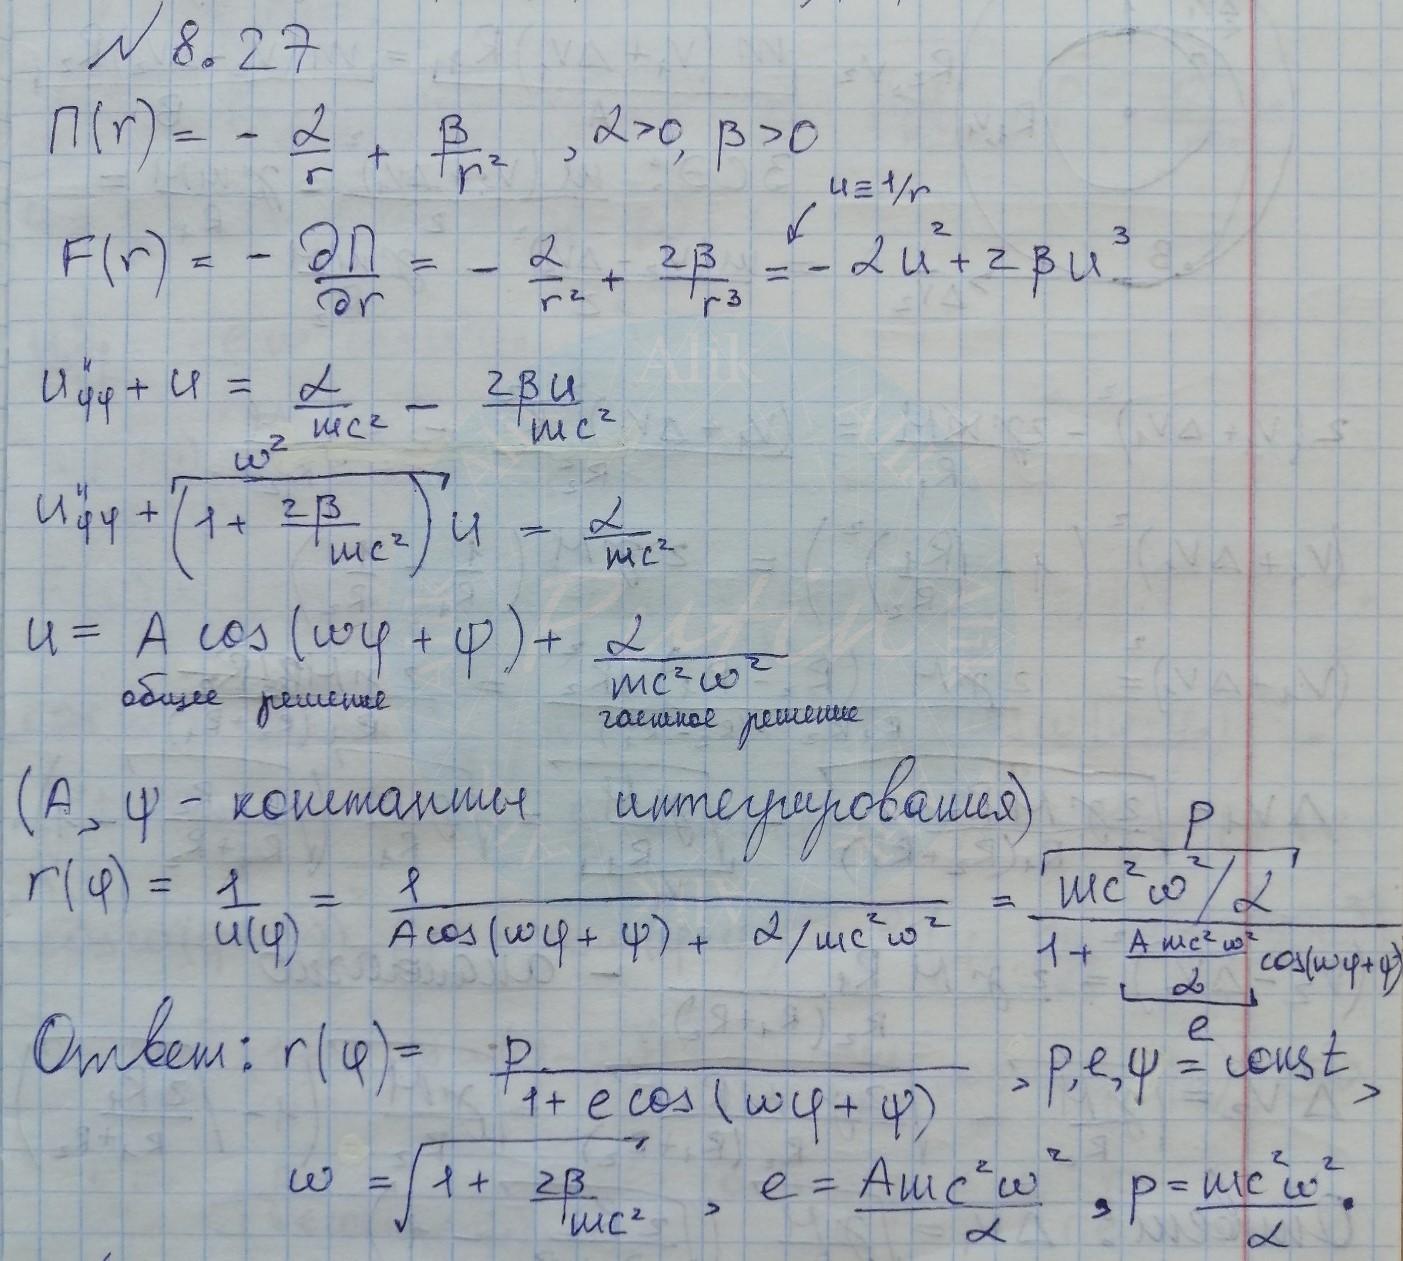 № 8.27
П(r) = - α/r + β/r², α>0, β>0
u≡1/r
F(r) = - ∂П/∂r = - α/r² + 2β/r³ = - αu² + 2βu³
u''φφ + u = α/mc² - 2βu/mc²
ω²
u''φφ + (1 + 2β/mc²)u = α/mc²
u = A cos(ωφ + ψ) + α/mc²ω²
общее решение частное решение
(A, ψ - константы интегрирования)
p
r(φ) = 1/u(φ) = 1/(A cos(ωφ + ψ) + α/mc²ω²) = (mc²ω²/α)/(1 + (Amc²ω²/α) cos(ωφ+ψ))
e
Ответ: r(φ) = p/(1 + e cos(ωφ + ψ)), p, e, ψ = const,
ω = √(1 + 2β/mc²), e = Amc²ω²/α, p = mc²ω²/α.
Alik